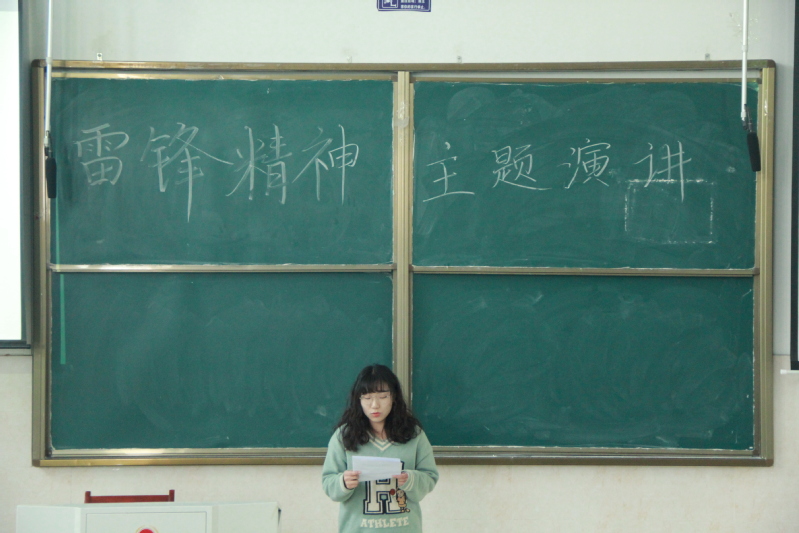 雷锋精神 主题演讲
H
ATHLETE